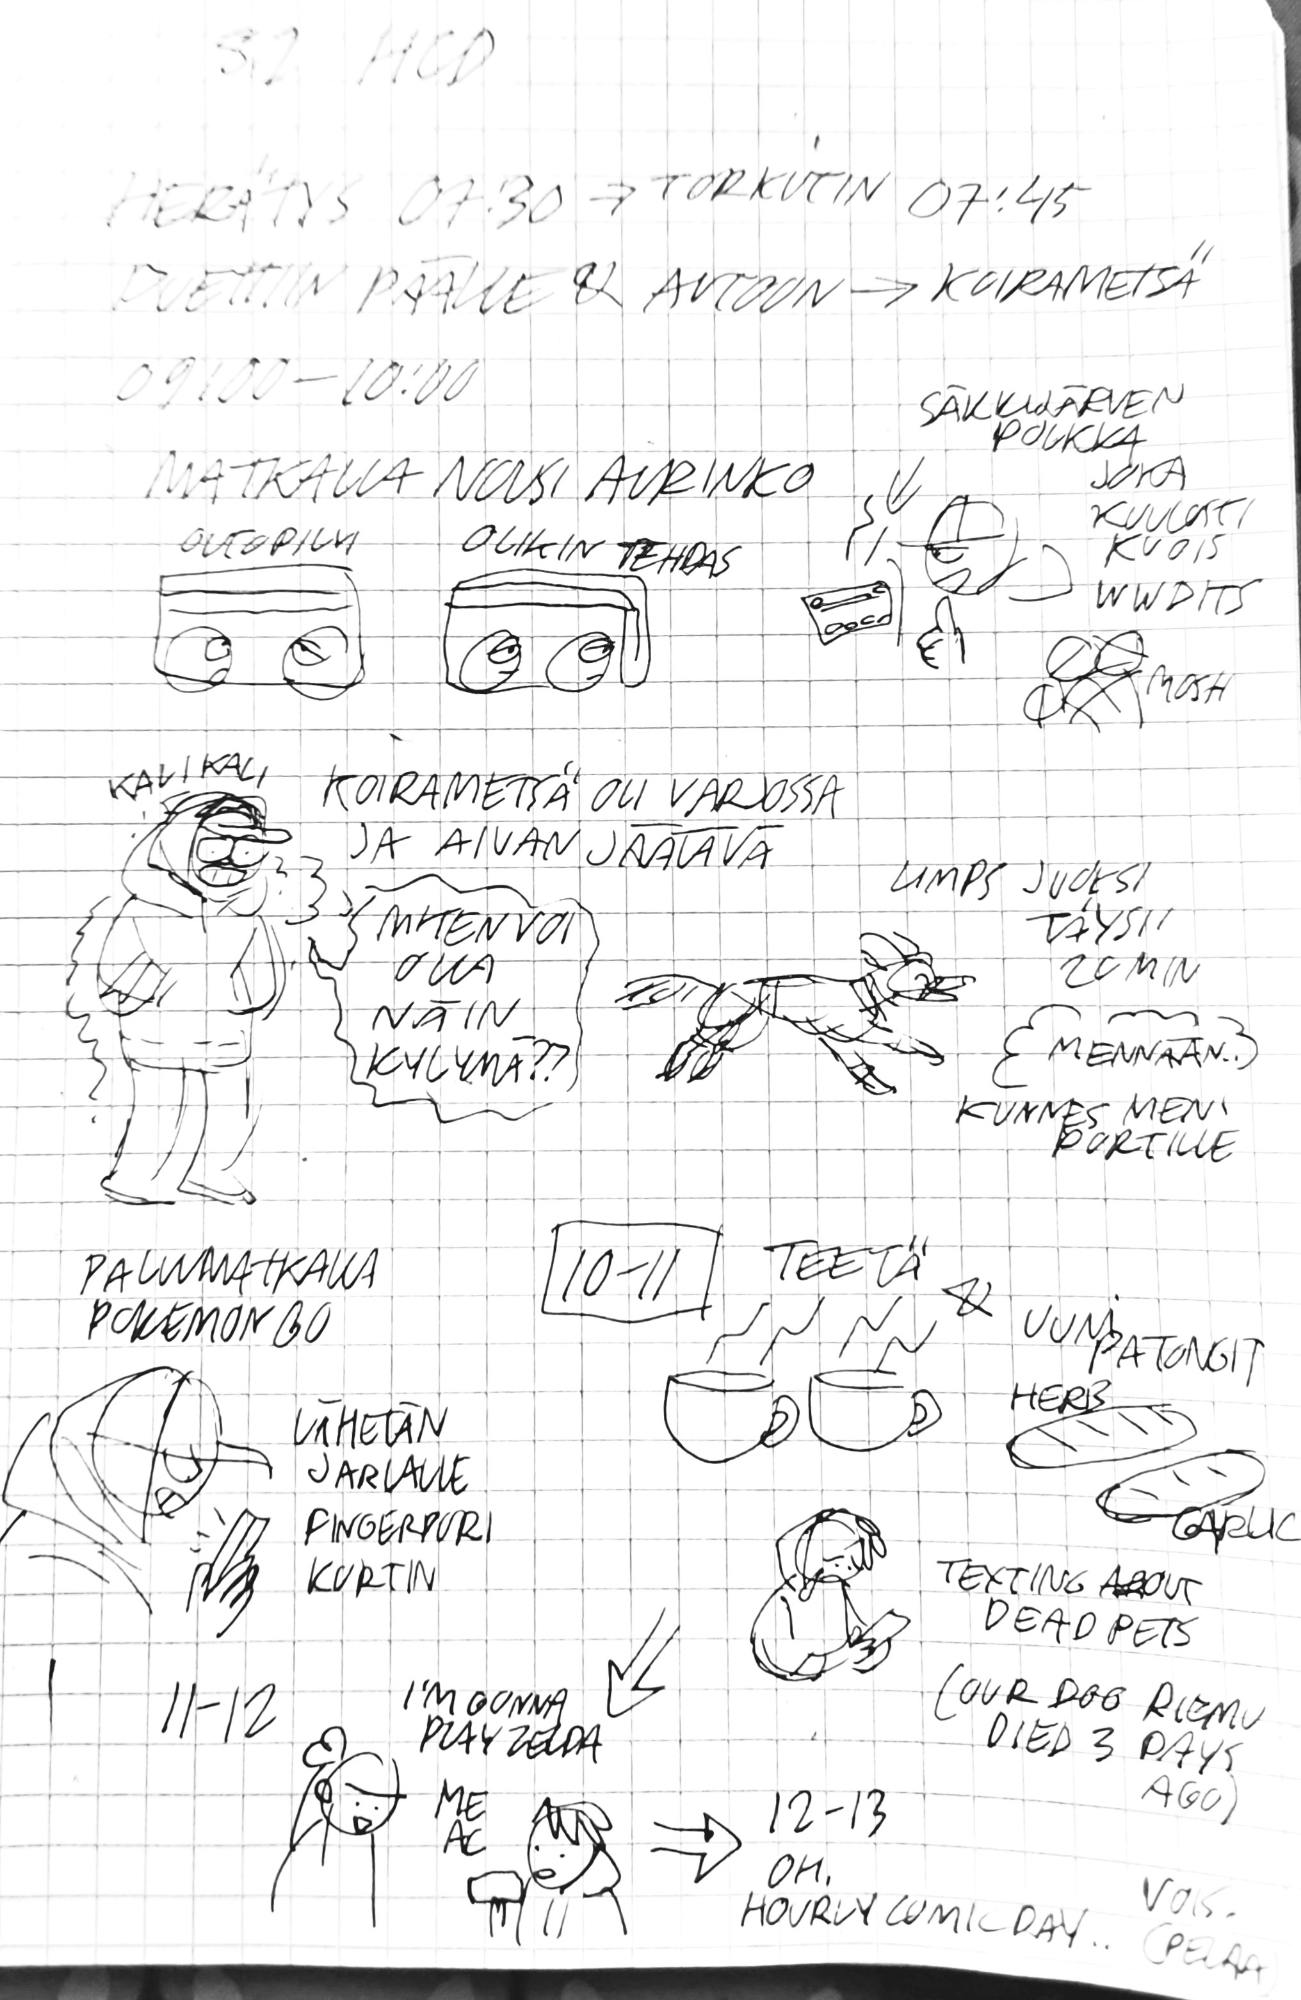 HCD
HERÄTYS 07:30 → TORKUTIN 07:45
PUETTIIN PÄÄLLE & AUTOON → KOIRAMETSÄ
09:00-10:00
MATKALLA NOUSI AURINKO
OLIKIN TEHDAS
SÄKKIJÄRVEN
POLKKA
JOKA
KUULOSTI
KUOIS
WWDITS
MOSH
KALIKALI
KOIRAMETSÄ OLI VARJOSSA
JA AIVAN JÄÄTÄVÄ
MITEN VOI
OLLA
NÄIN
KYLYMÄ??
LIMPS JUOKSI
TÄYSII
20 MIN
MENNÄÄN..
KUNNES MENI
PORTILLE
PALUUMATKALLA
POKEMON GO
LÄHETÄN
JARLALLE
FINGERPORI
KORTIN
10-11
TEETÄ
&
UUNI
PATONGIT
HERB
GARLIC
TEXTING ABOUT
DEAD PETS
(OUR DOG RIEMU
DIED 3 DAYS
AGO)
11-12
I'M GONNA
PLAY ZELDA
ME
AC
12-13
OH.
HOURLY COMIC DAY..
VOIS.
(PELAA)